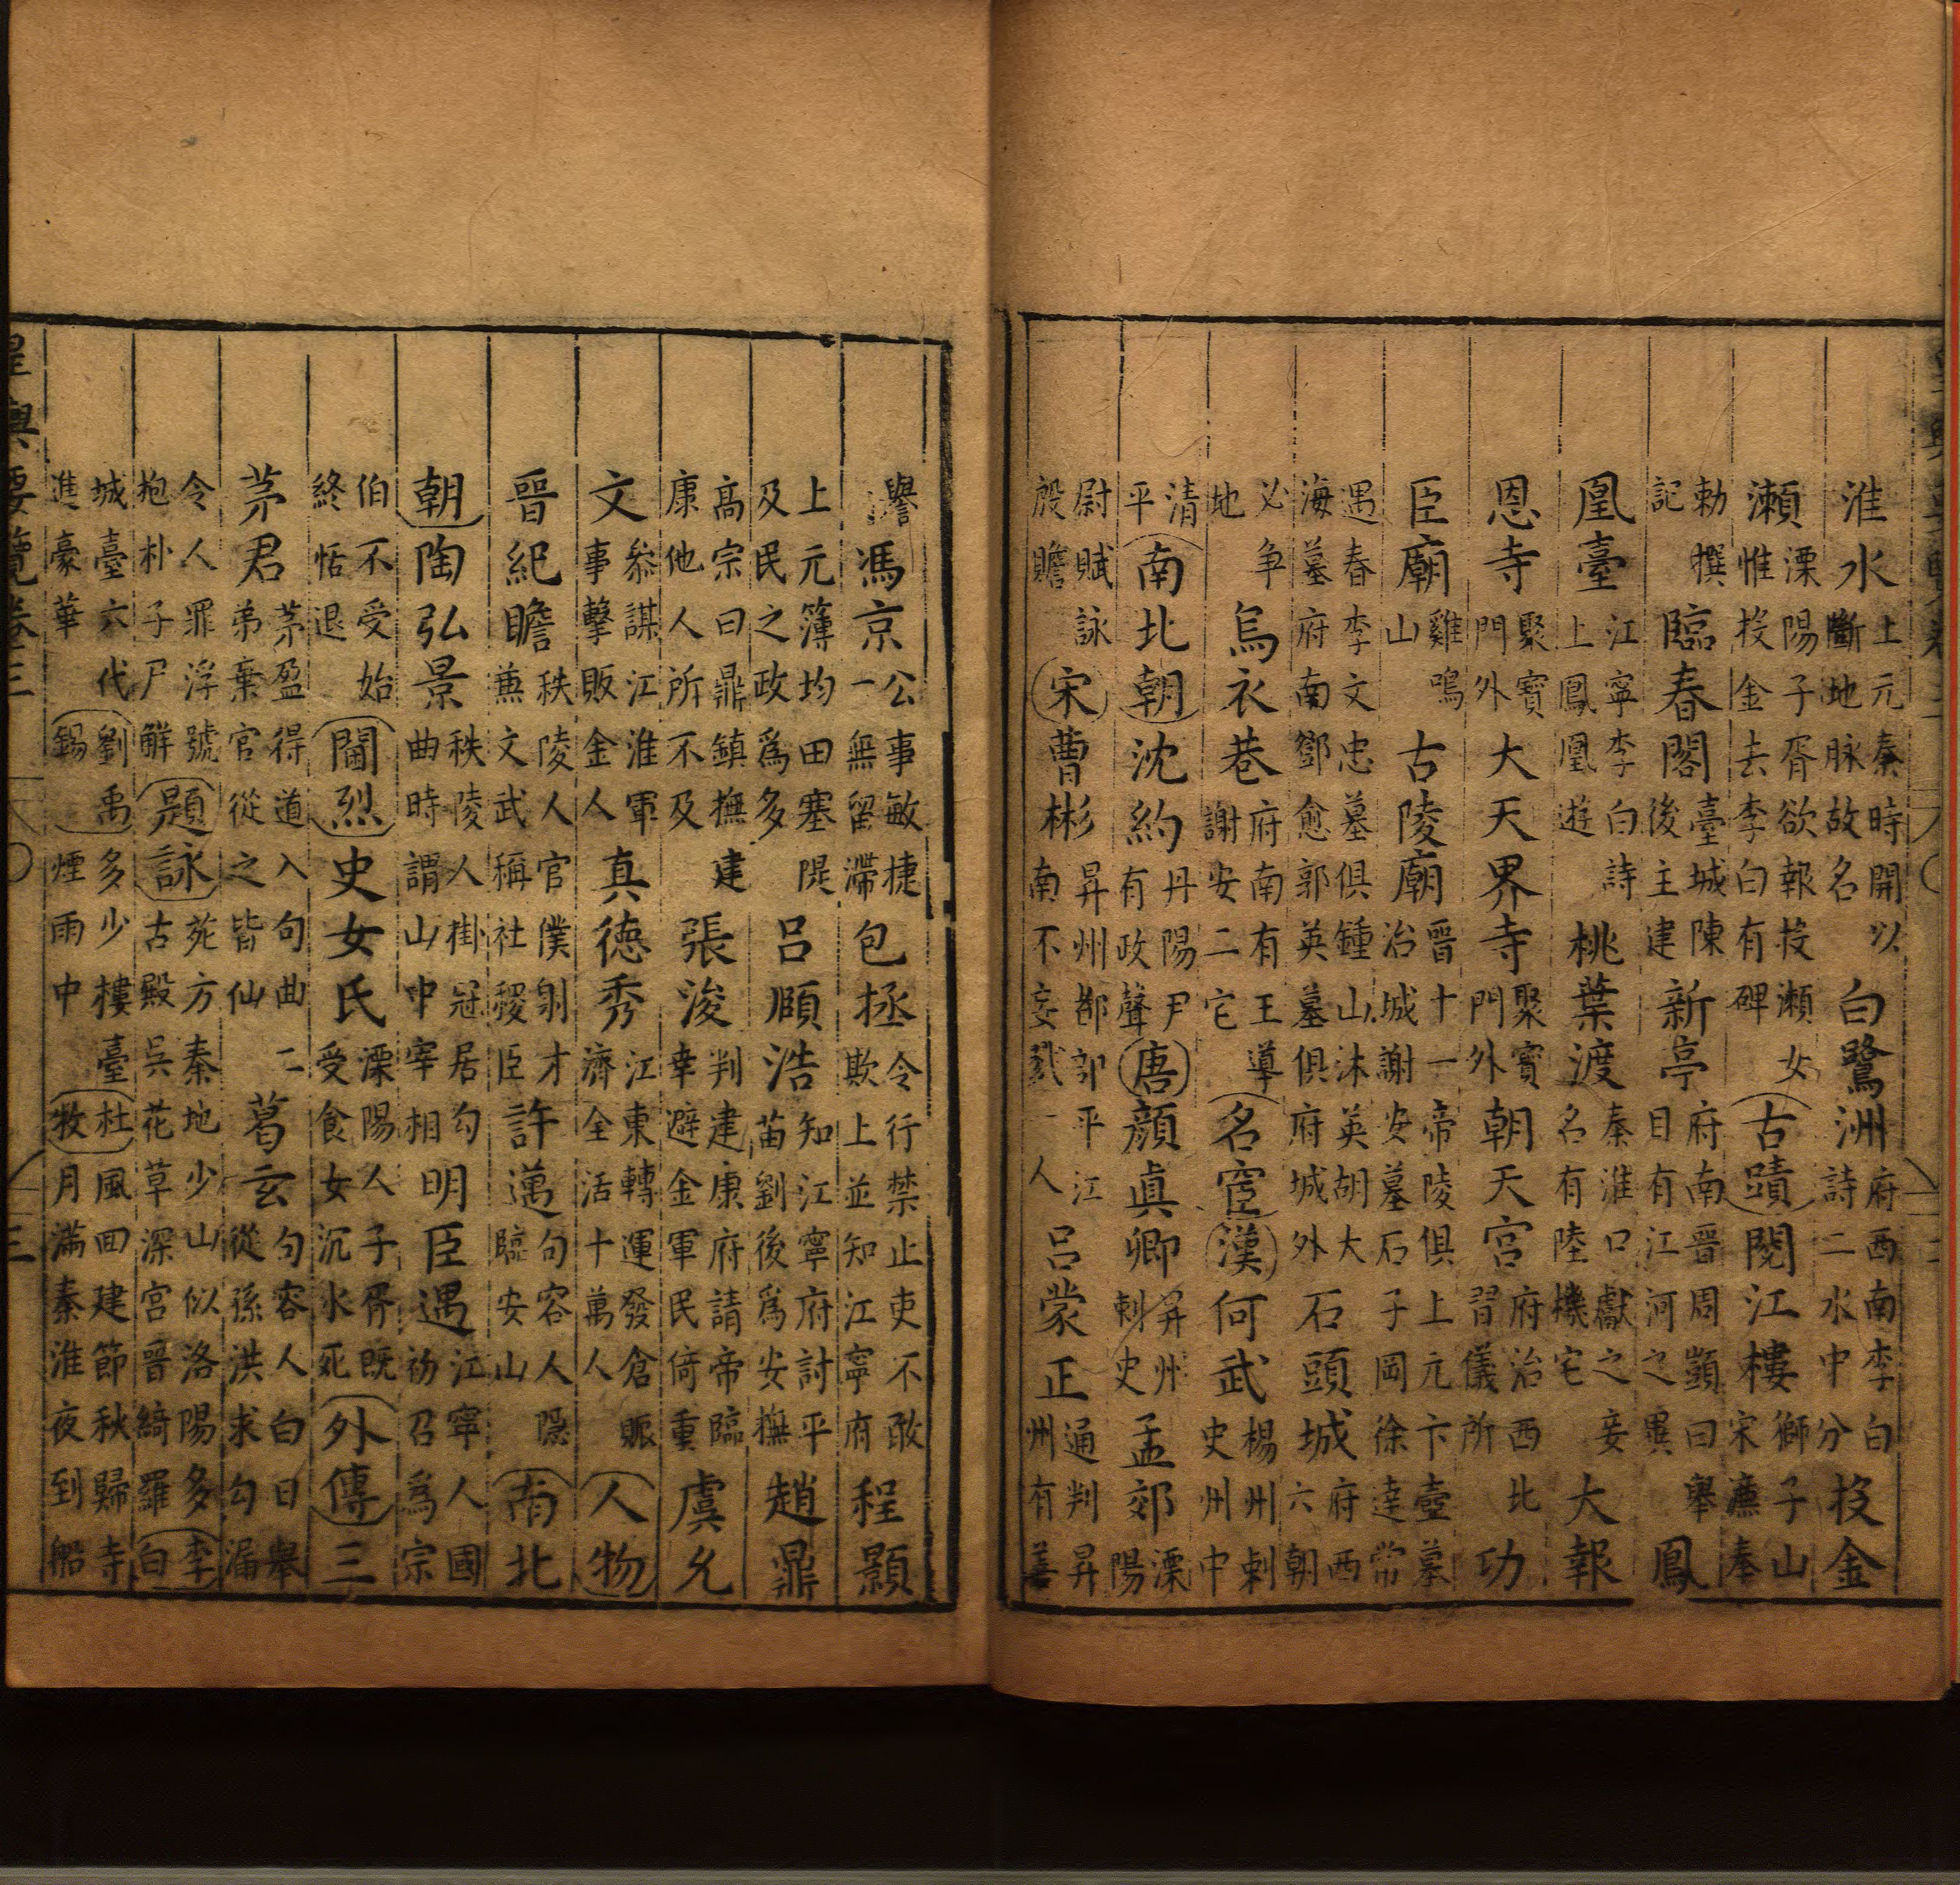 淮水上元秦時開以斷地脉故名白鷺洲府西南李白詩二水中分投金
瀨溧陽子胥欲報投瀨女惟投金去李白有碑古蹟閱江樓獅子山宋濂奉
勅撰記臨春閣臺城陳後主建新亭府南晉周顗曰舉目有江河之異鳳
凰臺江寧李白詩上鳳凰遊桃葉渡秦淮口獻之妾名有陸機宅大報
恩寺聚寳門外大天界寺聚寳門外朝天宮府治西北習儀所功
臣廟雞鳴山古陵廟晉十一帝陵俱上元卞壼墓治城謝安墓石子岡徐達常
遇春李文忠墓俱鍾山沐英胡大海墓府南鄧愈郭英墓俱府城外石頭城府西六朝
必争地烏衣巷府南有王導謝安二宅名宦漢何武楊州刺史州中
清平南北朝沈約丹陽尹有政聲唐顏眞卿昇州刺史孟郊溧陽
尉賦詠殷贍宋曹彬昇州都部平江南不妄戮一人呂蒙正通判昇州有善
譽馮京公事敏捷一無留滯包拯令行禁止吏不敢欺上並知江寧府程顥
上元簿均田塞隄及民之政爲多呂頤浩知江寧府討平苗劉後爲安撫趙鼎
高宗曰鼎鎮撫建康他人所不及張浚判建康府請帝臨幸避金軍民倚重虞允
文叅謀江淮軍事擊敗金人真德秀江東轉運發倉賑濟全活十萬人人物
晉紀瞻秣陵人官僕射才兼文武稱社稷臣許邁句容人隱臨安山南北
朝陶弘景秣陵人掛冠居勾曲時謂山中宰相明臣遇江寧人國初召爲宗
伯不受始終恬退閨烈史女氏溧陽人子胥既受食女沉水死外傳三
茅君茅盈得道入句曲二弟棄官從之皆仙葛玄句容人白日舉從孫洪求勾漏
令人罪浮號抱朴子尸解題詠苑方秦地少山似洛陽多古殿吳花草深宮晉綺羅李白
城臺六代進豪華劉禹錫多少樓臺煙雨中杜牧風回建節秋歸寺月滿秦淮夜到船
皇輿要覽卷三 三